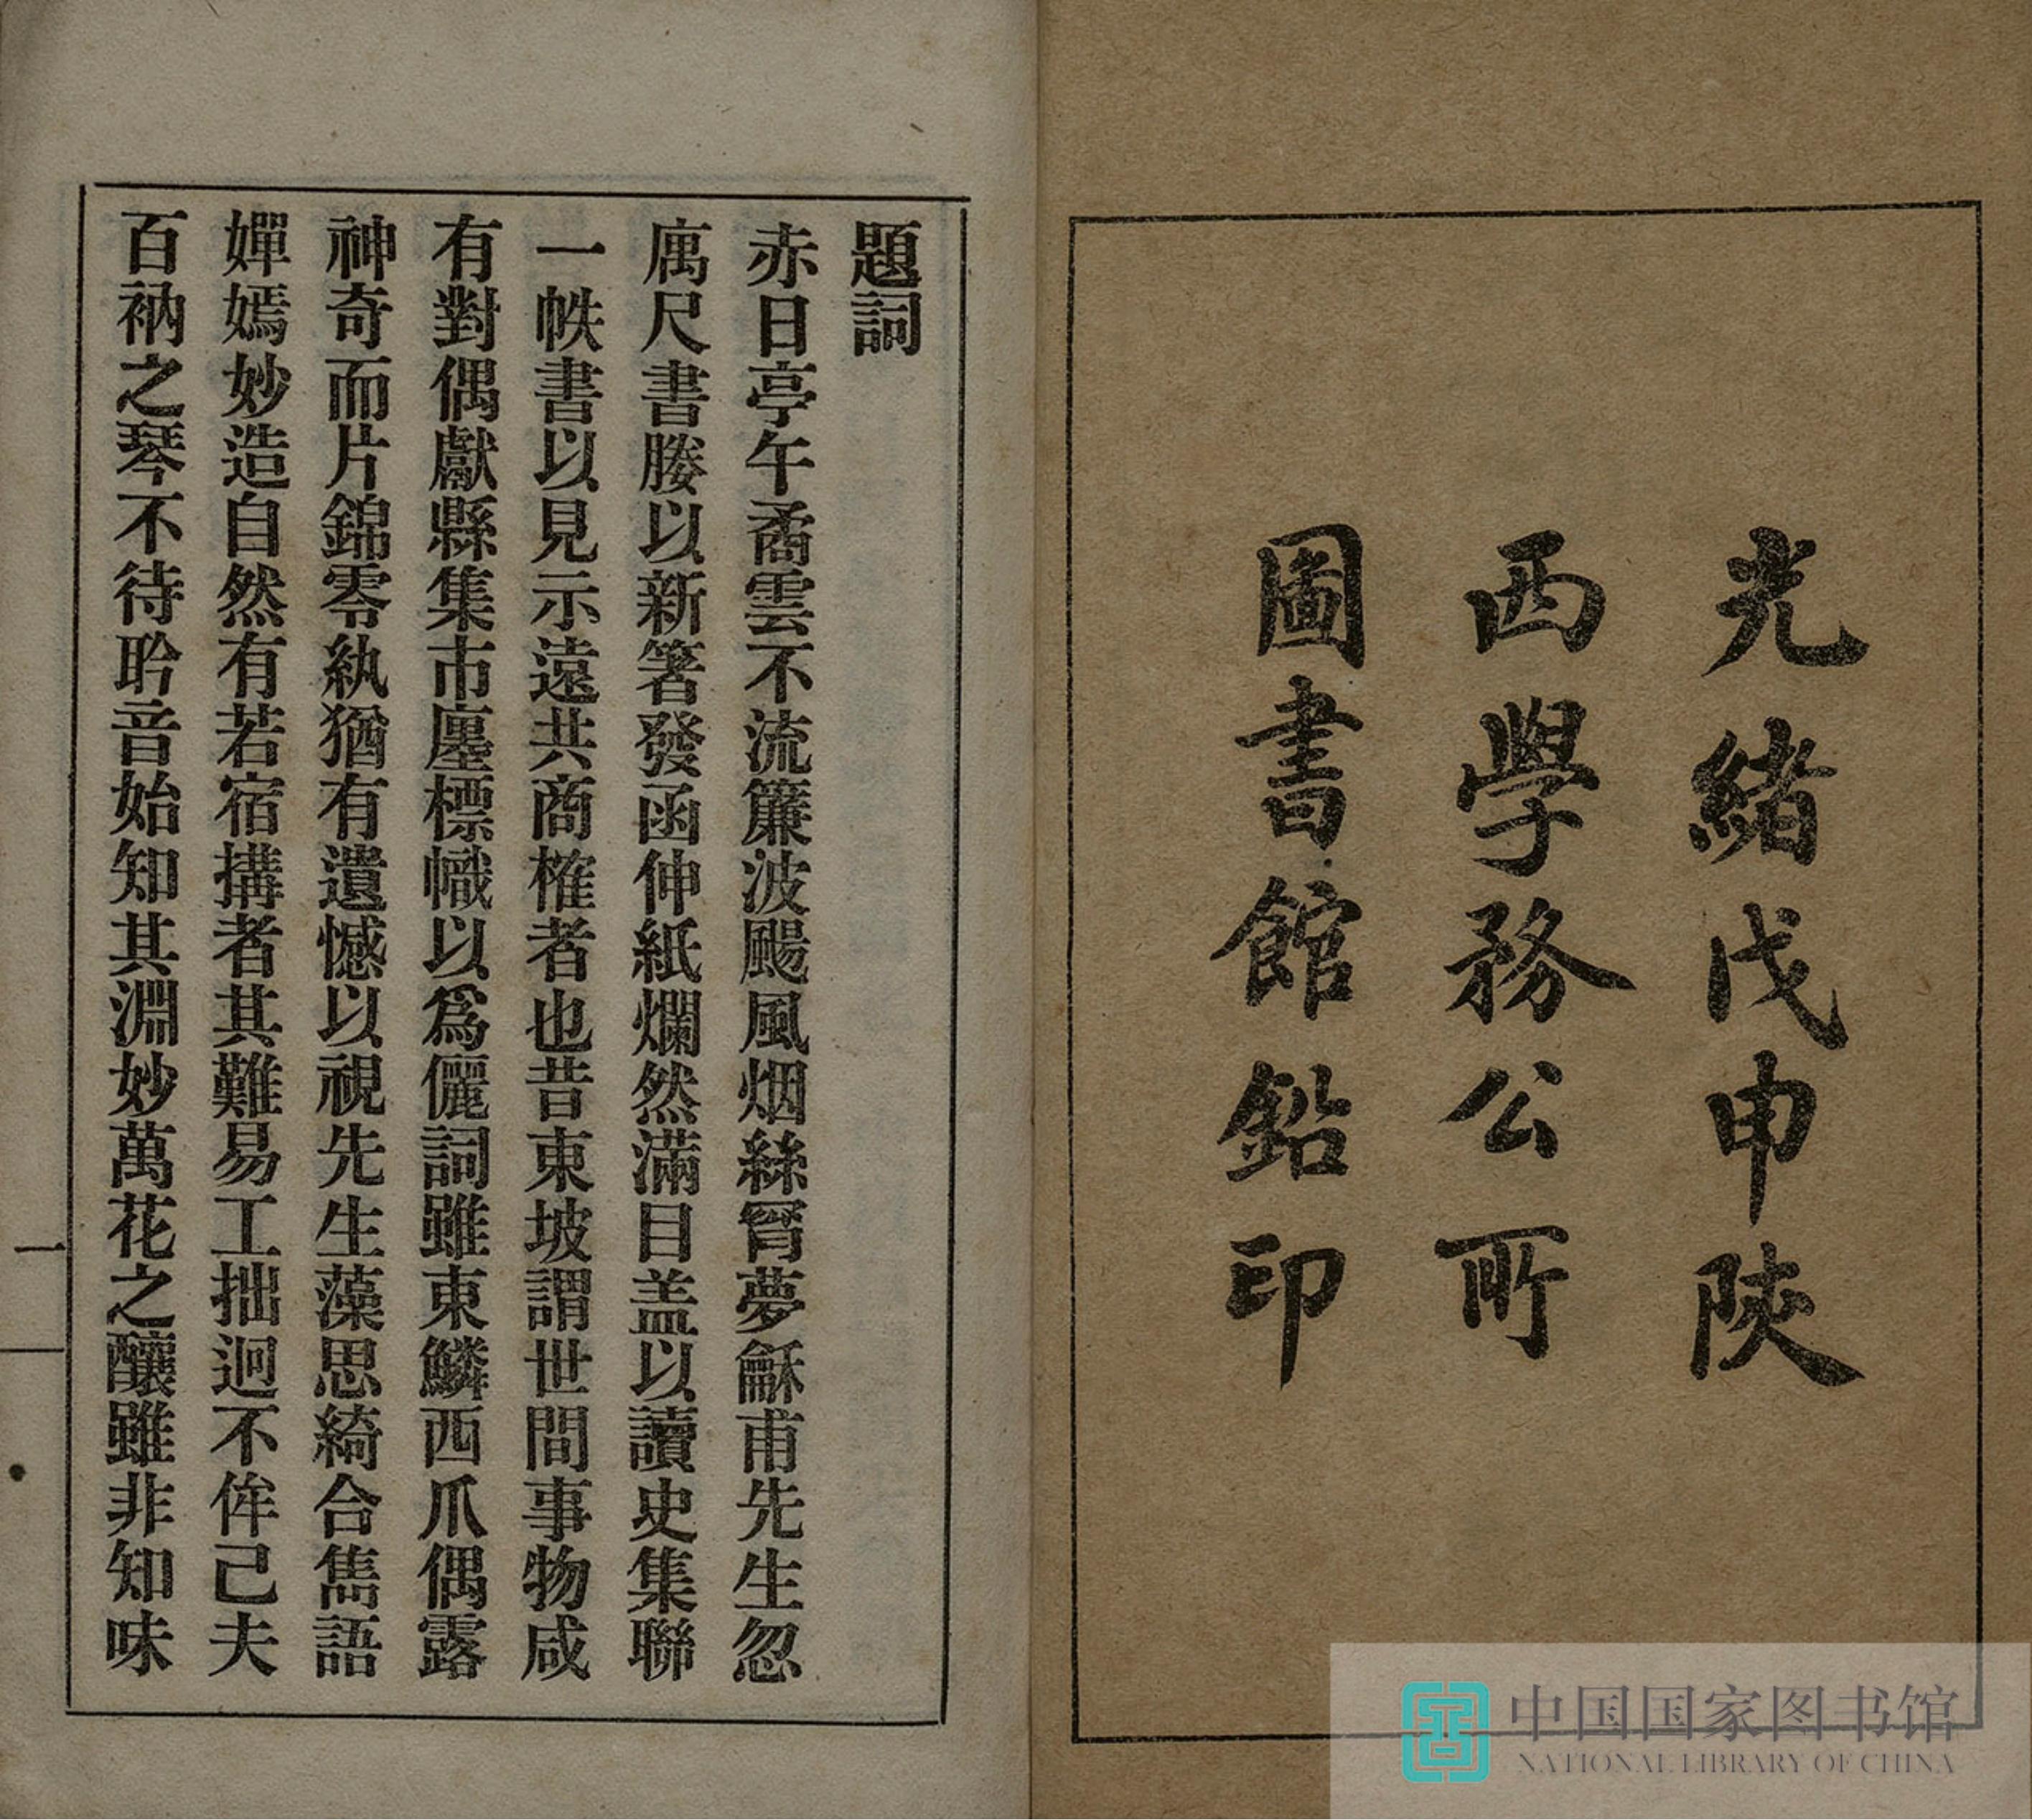 光緒戊申陝
西學務公所
圖書館鉛印
題詞
赤日亭午矞雲不流簾波颺風烟絲胃夢龢甫先生忽
寓尺書媵以新箸發函伸紙爛然滿目盖以讀史集聯
一帙書以見示遠共商榷者也昔東坡謂世間事物咸
有對偶獻縣集市廛標幟以爲儷詞雖東鱗西爪偶露
神奇而片錦零紈猶有遺憾以視先生藻思綺合雋語
嬋嫣妙造自然有若宿搆者其難易工拙迥不侔己夫
百衲之琴不待聆音始知其淵妙萬花之釀雖非知味
一
中国国家图书馆
NATIONAL LIBRARY OF CHINA